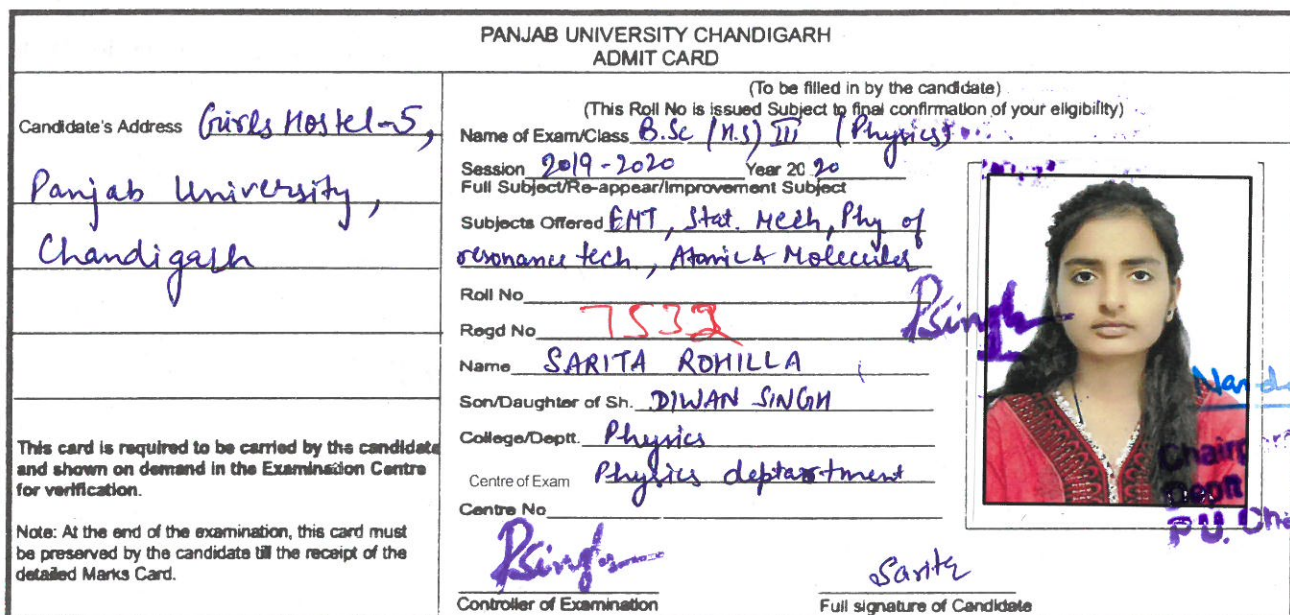 PANJAB UNIVERSITY CHANDIGARH
ADMIT CARD
Candidate's Address Girls Hostel-5,
Panjab University,
Chandigarh
This card is required to be carried by the candidate
and shown on demand in the Examination Centre
for verification.
Note: At the end of the examination, this card must
be preserved by the candidate till the receipt of the
detailed Marks Card.
(To be filled in by the candidate)
(This Roll No is issued Subject to final confirmation of your eligibility)
Name of Exam/Class B.Sc (H.S) III (Physics)
Session 2019-2020 Year 20 20
Full Subject/Re-appear/Improvement Subject
Subjects Offered EMT, Stat. Mech, Phy of
resonance tech, Atomic & Molecular
Roll No
Regd No 7532
Name SARITA ROHILLA
Son/Daughter of Sh. DIWAN SINGH
College/Deptt. Physics
Centre of Exam Physics deptartment
Centre No
PSingh
Controller of Examination
Sarita
Full signature of Candidate
PSingh
Deptt
P.U.